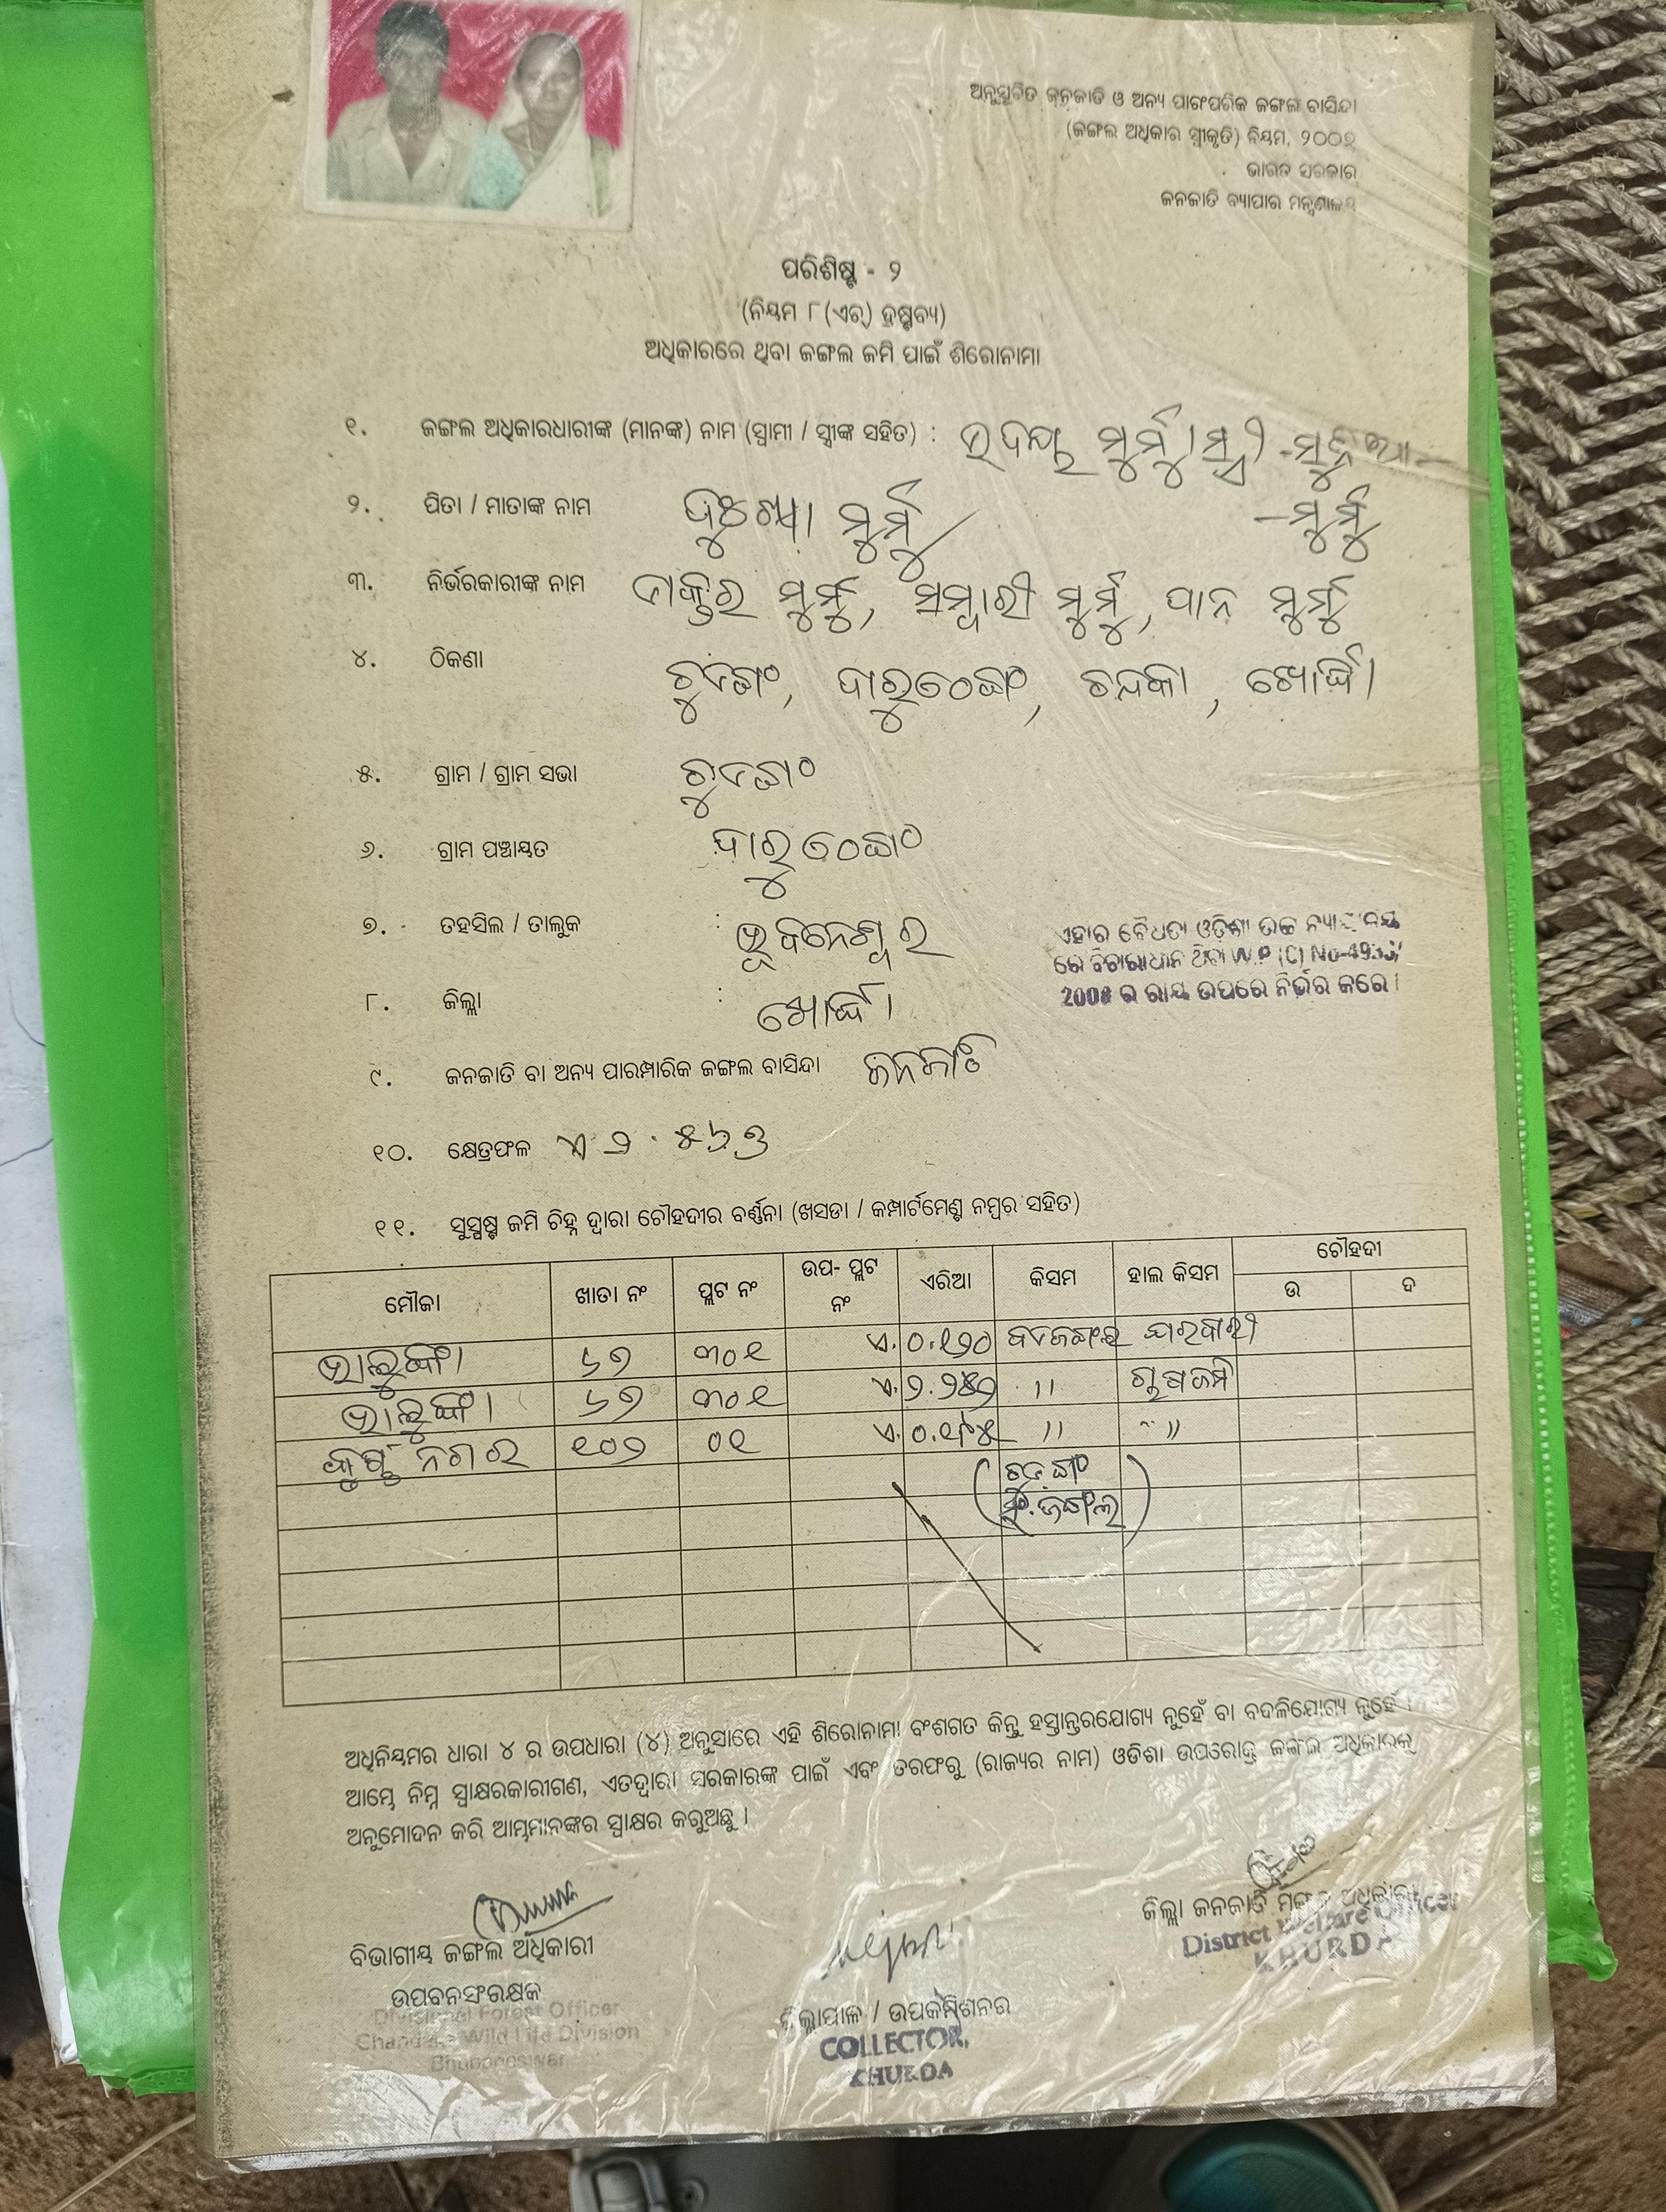 ଅନୁସୂଚିତ ଜନଜାତି ଓ ଅନ୍ୟ ପାରଂପରିକ ଜଙ୍ଗଲ ବାସିନ୍ଦା
(ଜଙ୍ଗଲ ଅଧିକାର ସ୍ୱୀକୃତି) ନିୟମ, ୨୦୦୭
ଭାରତ ସରକାର
ଜନଜାତି ବ୍ୟାପାର ମନ୍ତ୍ରଣାଳୟ
ପରିଶିଷ୍ଟ - ୨
(ନିୟମ ୮(ଏଚ୍) ଦ୍ରଷ୍ଟବ୍ୟ)
ଅଧିକାରରେ ଥିବା ଜଙ୍ଗଲ ଜମି ପାଇଁ ଶିରୋନାମା
୧. ଜଙ୍ଗଲ ଅଧିକାରଧାରୀଙ୍କ (ମାନଙ୍କ) ନାମ (ସ୍ୱାମୀ / ସ୍ତ୍ରୀଙ୍କ ସହିତ) : ଉଦୟ ମୁର୍ମୁ
- ମୁର୍ମୁ
୨. ପିତା / ମାତାଙ୍କ ନାମ ଦୁଃଖା ମୁର୍ମୁ
୩. ନିର୍ଭରକାରୀଙ୍କ ନାମ ଡାକ୍ତର ମୁର୍ମୁ, ସମ୍ବାରୀ ମୁର୍ମୁ, ପାନ ମୁର୍ମୁ
୪. ଠିକଣା ଚୁଡଙ୍ଗ, ଦାରୁଠେଙ୍ଗ, ଚନ୍ଦକା, ଖୋର୍ଦ୍ଧା
୫. ଗ୍ରାମ / ଗ୍ରାମ ସଭା ଚୁଡଙ୍ଗ
୬. ଗ୍ରାମ ପଞ୍ଚାୟତ ଦାରୁଠେଙ୍ଗ
୭. ତହସିଲ / ତାଲୁକ : ଭୂବନେଶ୍ୱର
ଏହାର ବୈଧତା ଓଡ଼ିଶା ଉଚ୍ଚ ନ୍ୟାୟାଳୟ
ରେ ବିଚାରାଧୀନ ଥିବା W.P (C) No-
2008 ର ରାୟ ଉପରେ ନିର୍ଭର କରେ।
୮. ଜିଲ୍ଲା : ଖୋର୍ଦ୍ଧା
୯. ଜନଜାତି ବା ଅନ୍ୟ ପାରମ୍ପାରିକ ଜଙ୍ଗଲ ବାସିନ୍ଦା ଜନଜାତି
୧୦. କ୍ଷେତ୍ରଫଳ ଏ ୨.୫୬୬
୧୧. ସୁସ୍ପଷ୍ଟ ଜମି ଚିହ୍ନ ଦ୍ୱାରା ଚୌହଦୀର ବର୍ଣ୍ଣନା (ଖସଡା / କମ୍ପାର୍ଟମେଣ୍ଟ ନମ୍ବର ସହିତ)
ମୌଜା ଖାତା ନଂ ପ୍ଲଟ ନଂ ଉପ- ପ୍ଲଟ ନଂ ଏରିଆ କିସମ ହାଲ କିସମ ଚୌହଦୀ
ଉ ଦ
ଭାଲୁଙ୍କା ୬୭ ୩୦୧ ଏ. ବଡଜଙ୍ଗଲ ଘରବାରୀ
ଭାଲୁଙ୍କା ୬୭ ୩୦୧ ଏ. " ଚାଷଜମି
ନଗର ୧୦୨ ୦୧ ଏ. " "
ଅଧିନିୟମର ଧାରା ୪ ର ଉପଧାରା (୪) ଅନୁସାରେ ଏହି ଶିରୋନାମା ବଂଶଗତ କିନ୍ତୁ ହସ୍ତାନ୍ତରଯୋଗ୍ୟ ନୁହେଁ ବା ବଦଳିଯୋଗ୍ୟ ନୁହେଁ ।
ଆମ୍ଭେ ନିମ୍ନ ସ୍ୱାକ୍ଷରକାରୀଗଣ, ଏତଦ୍ୱାରା ସରକାରଙ୍କ ପାଇଁ ଏବଂ ତରଫରୁ (ରାଜ୍ୟର ନାମ) ଓଡିଶା ଉପରୋକ୍ତ ଜଙ୍ଗଲ ଅଧିକାରକୁ
ଅନୁମୋଦନ କରି ଆମ୍ଭମାନଙ୍କର ସ୍ୱାକ୍ଷର କରୁଅଛୁ ।
ବିଭାଗୀୟ ଜଙ୍ଗଲ ଅଧିକାରୀ
ଉପବନସଂରକ୍ଷକ
Divisional Forest Officer
Chandaka Wild Life Division
Bhubaneswar
ଜିଲ୍ଲାପାଳ / ଉପକମିଶନର
COLLECTOR,
KHURDA
ଜିଲ୍ଲା ଜନଜାତି ମଙ୍ଗଳ ଅଧିକାରୀ
District Welfare Officer
KHURDA